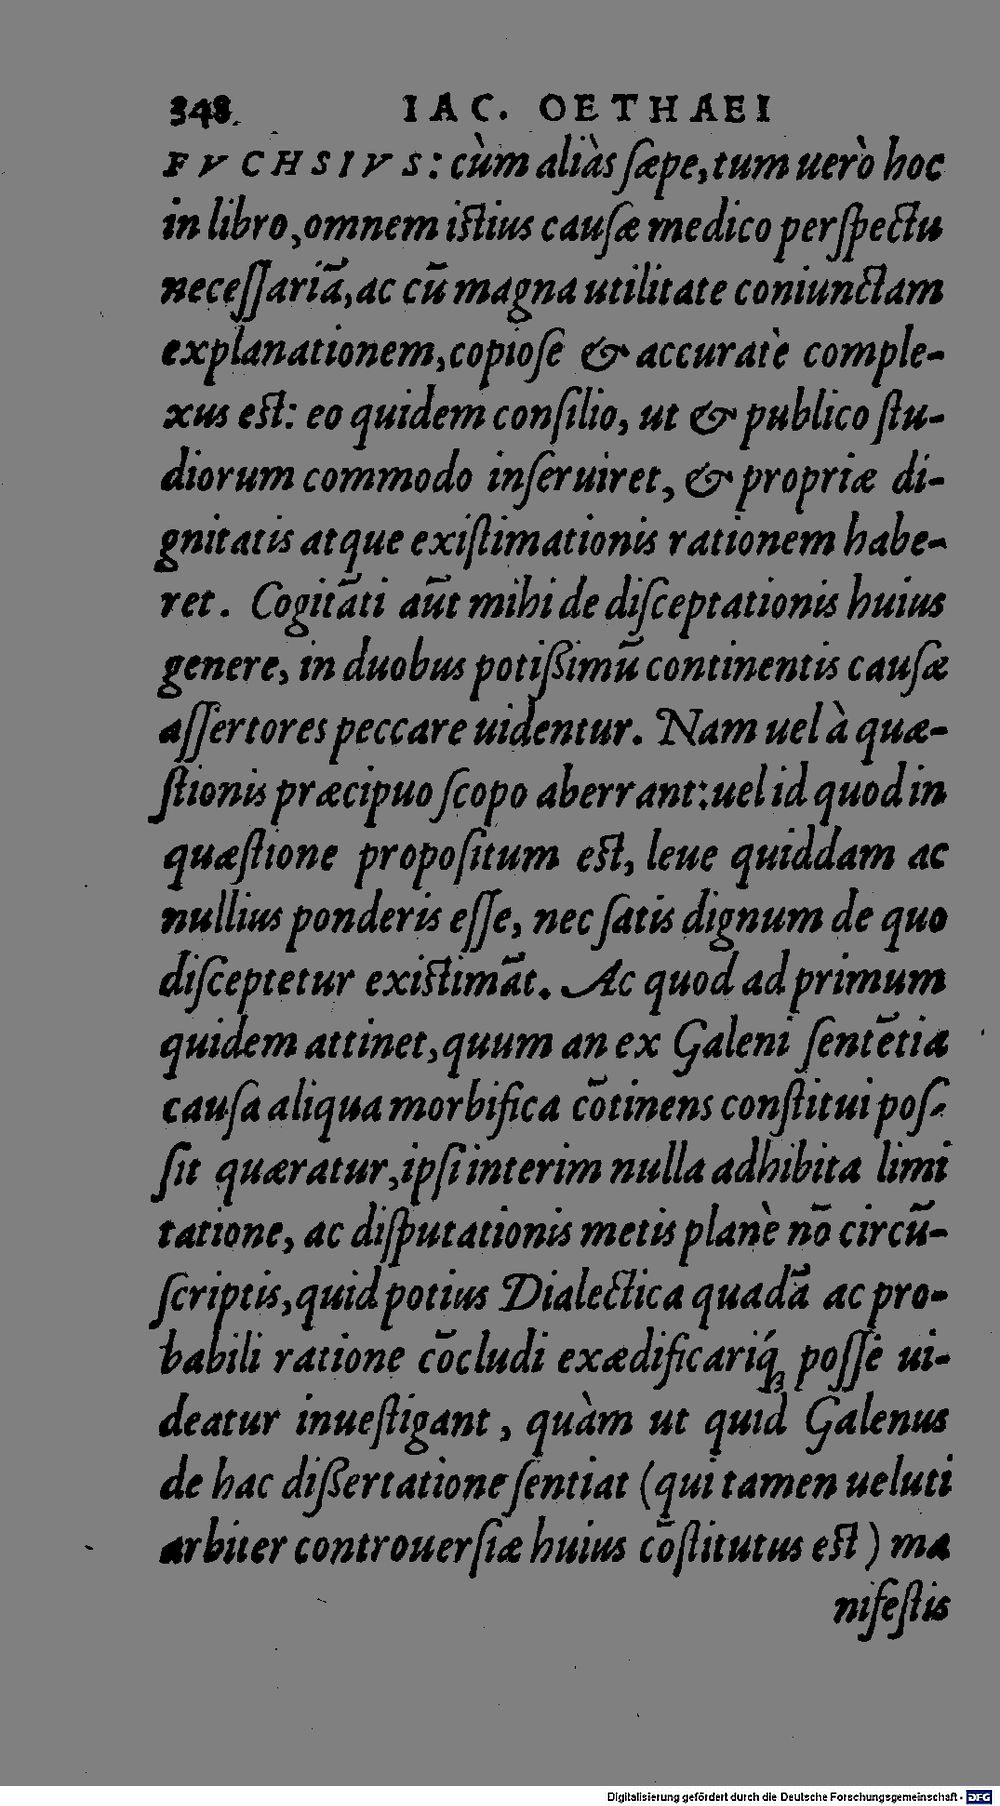 348 IAC. OETHAEI
FVCHSIVS: cùm aliàs ſæpe, tum uerò hoc
in libro, omnem iſtius cauſæ medico perſpectu
neceſſariā, ac cū magna utilitate coniunctam
explanationem, copioſe & accuratè comple-
xus eſt: eo quidem conſilio, ut & publico ſtu-
diorum commodo inſeruiret, & propriæ di-
gnitatis atque exiſtimationis rationem habe-
ret. Cogitāti aūt mihi de diſceptationis huius
genere, in duobus potißimū continentis cauſæ
aſſertores peccare uidentur. Nam uel à quæ-
ſtionis præcipuo ſcopo aberrant: uel id quod in
quæſtione propoſitum eſt, leue quiddam ac
nullius ponderis eſſe, nec ſatis dignum de quo
diſceptetur exiſtimāt. Ac quod ad primum
quidem attinet, quum an ex Galeni ſentētia
cauſa aliqua morbifica cōtinens conſtitui poſ-
ſit quæratur, ipſi interim nulla adhibita limi
tatione, ac diſputationis metis planè nō circū-
ſcriptis, quid potius Dialectica quadā ac pro-
babili ratione cōcludi exædificariq́ꝫ poſſe ui-
deatur inueſtigant, quàm ut quid Galenus
de hac dißertatione ſentiat (qui tamen ueluti
arbiter controuerſiæ huius cōſtitutus eſt) ma
nifeſtis
Digitalisierung gefördert durch die Deutsche Forschungsgemeinschaft - DFG